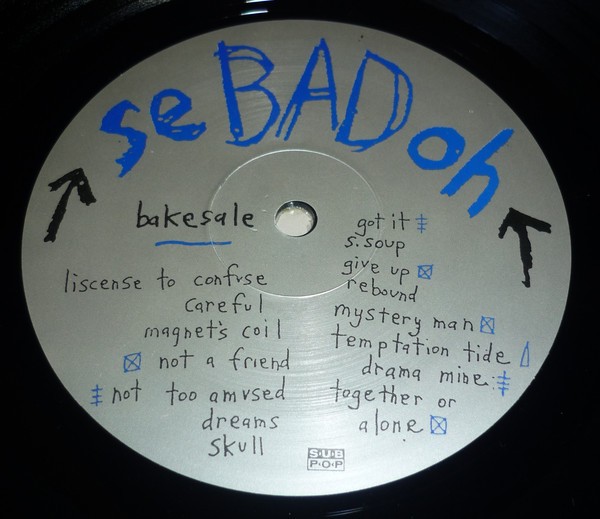 seBADoh
bakesale
liscense to confuse
careful
magnet's coil
not a friend
not too amused
dreams
skull
got it
s. soup
give up
rebound
mystery man
temptation tide
drama mine
together or
alone
SUB
POP